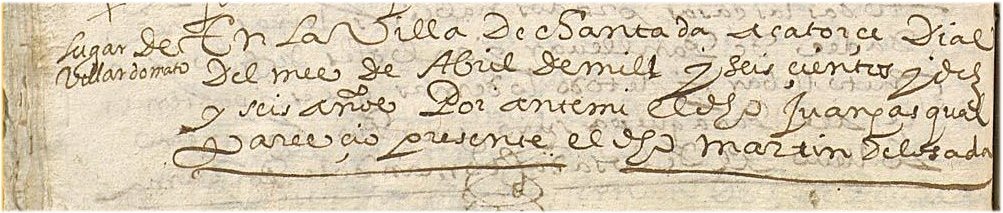 Lugar de
Villardonnato
En La Villa De chantada a catorçe Dias
Del mes de Abril de mill y seis çientos y diez
y seis años Por ante mi el dho Juan pasqual
pareçio presente el dho martin de losada